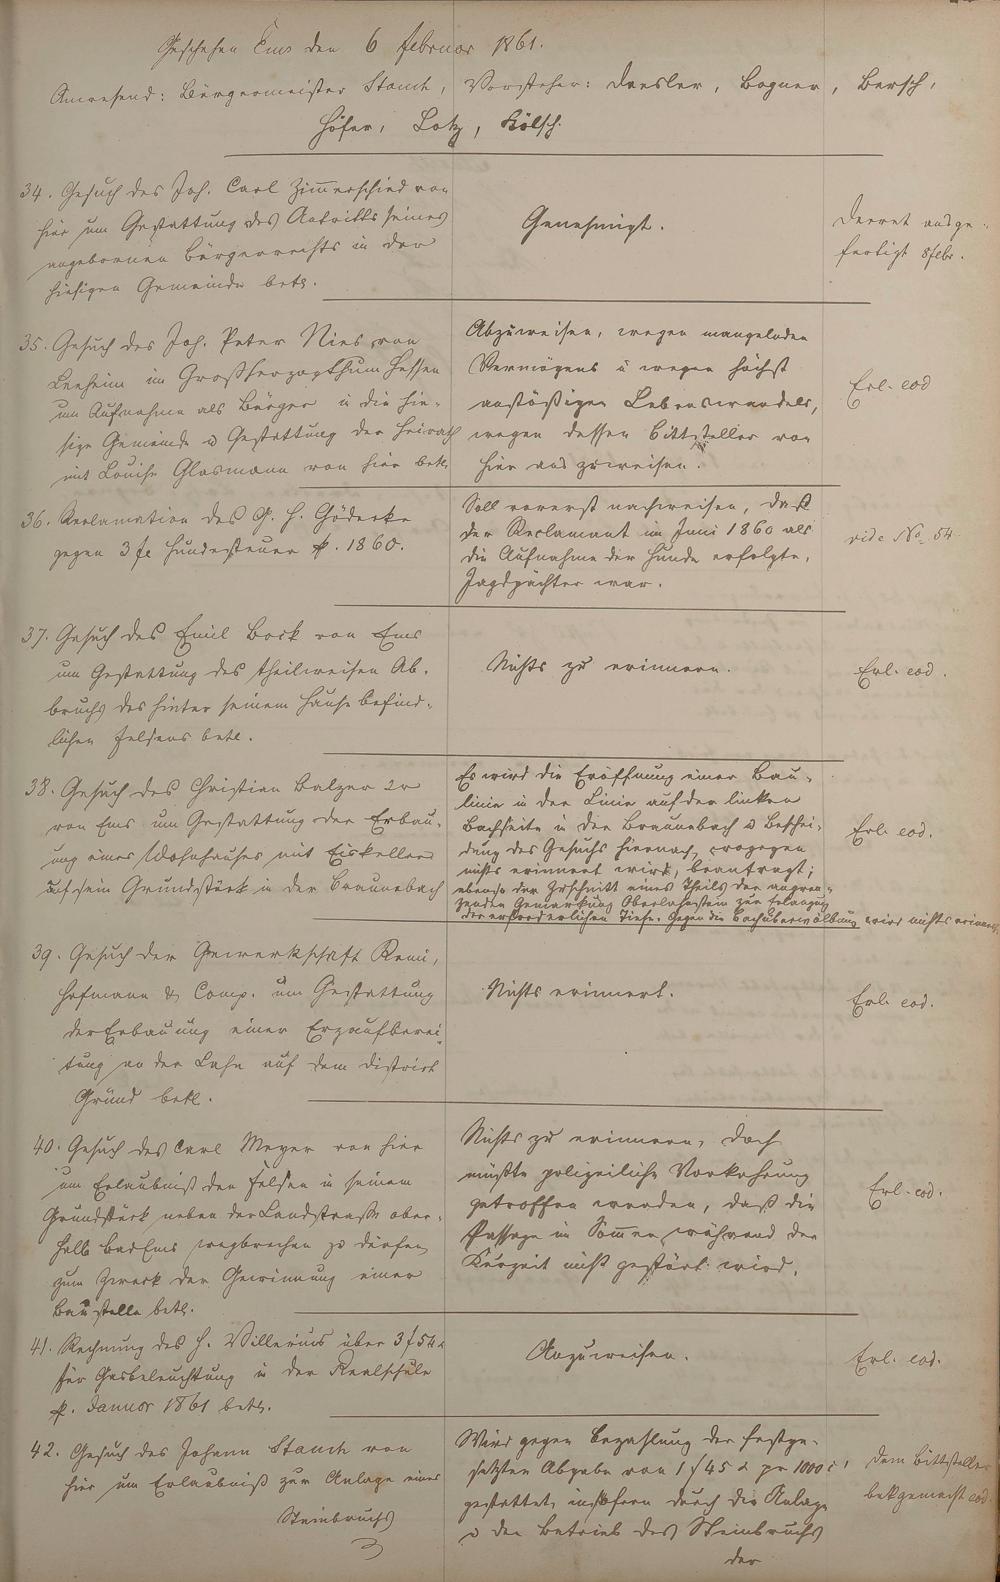 Geschehen Ems den 6 Februar 1861.
Anwesend: Bürgermeister Stamm, Vorsteher: Daesler, Bogner, Bersch,
Höfer, Lotz, Kölsch.
34. Gesuch des Joh. Carl Zimerschied von
hier um Gestattung des Antritts seines
angebornen Bürgerrechts in der
hiesigen Gemeinde betr.
Genehmigt.
Decret ausge-
fertigt 8 Febr.
35. Gesuch des Joh. Peter Nies von
Leeheim im Großherzogthum Hessen
um Aufnahme als Bürger in die hie-
sige Gemeinde u Gestattung der Heirath
mit Louise Glasmann von hier betr.
Abzuweisen, wegen mangelnden
Vermögens u wegen höchst
anstößigen Lebenswandels,
wegen dessen Bittsteller von
hier auszuweisen.
Erl. eod
36. Reclamation des G. H. Gödecke
gegen 3 fl Hundesteuer p. 1860.
Soll vorerst nachweisen, daß
der Reclamant im Juni 1860 als
die Aufnahme der Hunde erfolgte,
Jagdpächter war.
vide No. 54
37. Gesuch des Emil Bock von Ems
um Gestattung des theilweisen Ab-
bruchs des hinter seinem Hause befind-
lichen Felsens betr.
Nichts zu erinnern.
Erl. eod.
38. Gesuch des Christian Balzer 2r
von Ems um Gestattung der Erbau-
ung eines Wohnhauses mit Eiskeller
auf sein Grundstück in der Braunebach
Es wird die Eröffnung einer Bau-
linie in der Linie auf der linken
Bachseite in der Braunebach u Beschei-
dung des Gesuchs hiernach, wogegen
nichts erinnert wird, beantragt;
ebenso der Zuschnitt eines Theils der angren-
zenden Gemarkung Oberlahnstein zur Erlangung
der erforderlichen Tiefe. Gegen die Bachüberwölbung wird nichts erinnert.
Erl. eod.
39. Gesuch der Gewerkschaft Remi,
Hofmann & Comp. um Gestattung
der Erbauung einer Erzaufberei-
tung an der Lahn auf dem District
Gründ betr.
Nichts erinnert.
Erl. eod.
40. Gesuch des Carl Meyer von hier
um Erlaubniß den Felsen in seinem
Grundstück neben der Landstraße ober-
halb Bad Ems wegbrechen zu dürfen
zum Zweck der Gewinnung einer
Baustelle betr.
Nichts zu erinnern, doch
müßte polizeiliche Vorkehrung
getroffen werden, daß die
Passage im Somer während der
Kurzeit nicht gestört wird.
Erl. eod.
41. Rechnung des H. Villerius über 3 f 54 x
für Gasbeleuchtung in der Realschule
p. Januar 1861 betr.
Anzuweisen.
Erl. eod.
42. Gesuch des Johann Stamm von
hier um Erlaubniß zur Anlage eines
Steinbruchs
Wird gegen Bezahlung der festge-
setzten Abgabe von 1 f 45 x pr 1000 c'
gestattet, insofern durch die Anlage
u den Betrieb des Steinbruchs
der
Dem Bittsteller
bekgemacht eod.